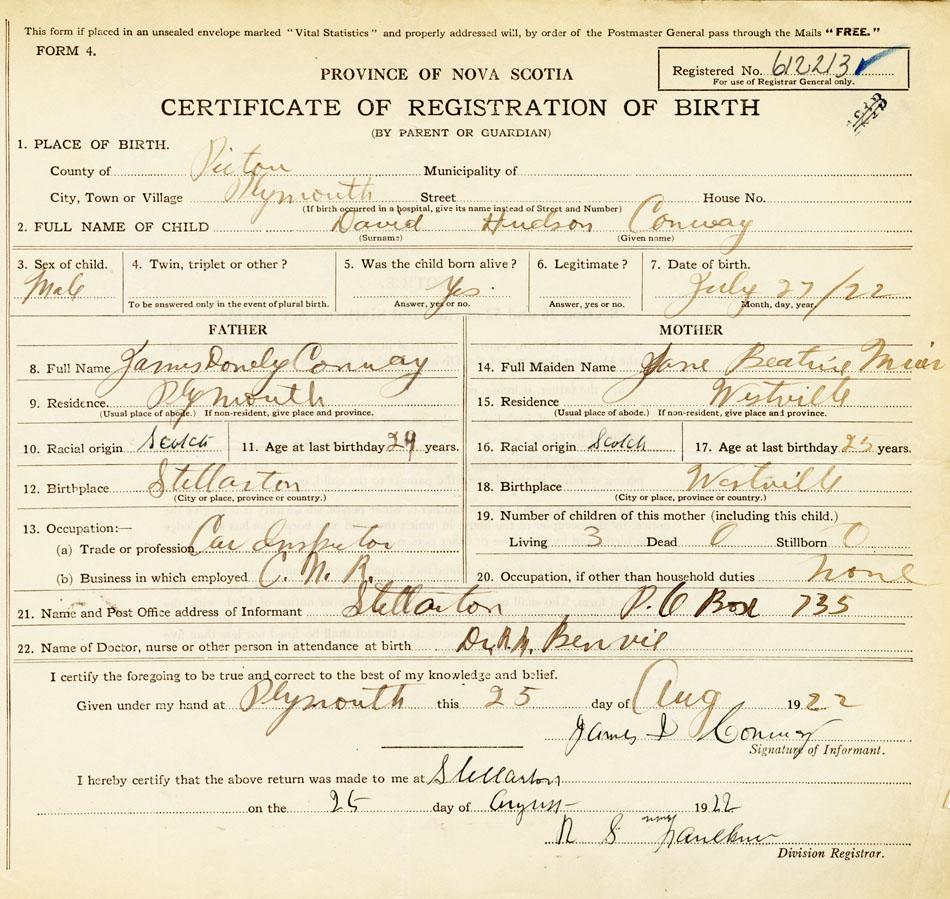 This form if placed in an unsealed envelope marked "Vital Statistics" and properly addressed will, by order of the Postmaster General pass through the Mails "FREE."
FORM 4.
Registered No. 612213
For use of Registrar General only.
PROVINCE OF NOVA SCOTIA
CERTIFICATE OF REGISTRATION OF BIRTH
(BY PARENT OR GUARDIAN)
1. PLACE OF BIRTH.
County of Pictou Municipality of
City, Town or Village Plymouth Street House No.
(If birth occurred in a hospital, give its name instead of Street and Number)
2. FULL NAME OF CHILD David Hudson Conway
(Surname) (Given name)
3. Sex of child. 4. Twin, triplet or other? 5. Was the child born alive? 6. Legitimate? 7. Date of birth.
Male Yes. July 27/22
To be answered only in the event of plural birth. Answer, yes or no. Answer, yes or no. Month, day, year
FATHER MOTHER
8. Full Name James Donely Conway 14. Full Maiden Name Jane Beatrice
9. Residence. Plymouth 15. Residence Westville
(Usual place of abode.) If non-resident, give place and province. (Usual place of abode.) If non-resident, give place and province.
10. Racial origin Scotch 11. Age at last birthday 29 years. 16. Racial origin Scotch 17. Age at last birthday 25 years.
12. Birthplace Stellarton 18. Birthplace Westville
(City or place, province or country.) (City or place, province or country.)
13. Occupation:— 19. Number of children of this mother (including this child.)
(a) Trade or profession Car Inspector Living 3 Dead 0 Stillborn 0
(b) Business in which employed C. N. R. 20. Occupation, if other than household duties none
21. Name and Post Office address of Informant Stellarton P. O Box 735
22. Name of Doctor, nurse or other person in attendance at birth Dr. Benvie
I certify the foregoing to be true and correct to the best of my knowledge and belief.
Given under my hand at Plymouth this 25 day of Aug 1922
James D Conway
Signature of Informant.
I hereby certify that the above return was made to me at Stellarton
on the 25 day of August 1922
Faulkner
Division Registrar.